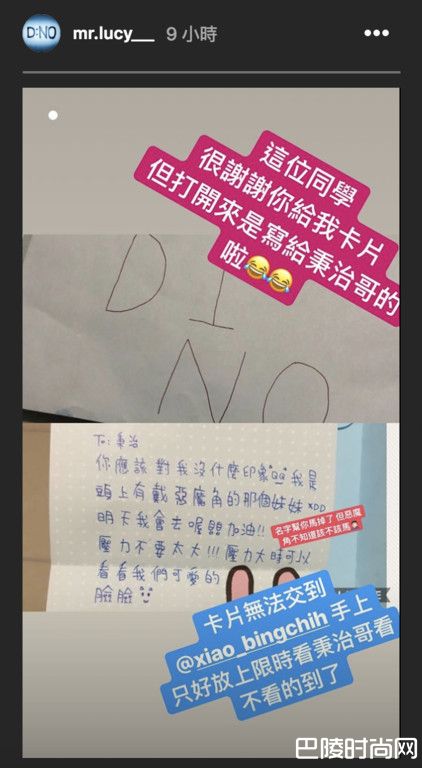 D:NO
mr.lucy__ 9 小時
這位同學
很謝謝你給我卡片
但打開來是寫給秉治哥的
啦😂😂
D I
N O
To: 秉治
你應該對我沒什麼印象QQ我是
頭上有戴惡魔角的那個妹妹xDD
明天我會去喔 加油!!
壓力不要太大!!!壓力大時可以
看看我們可愛的
臉臉
名字幫你馬掉了 但惡魔
角不知道該不該馬
卡片無法交到
@xiao_bingchih 手上
只好放上限時看秉治哥看
不看的到了
巴陵时尚网